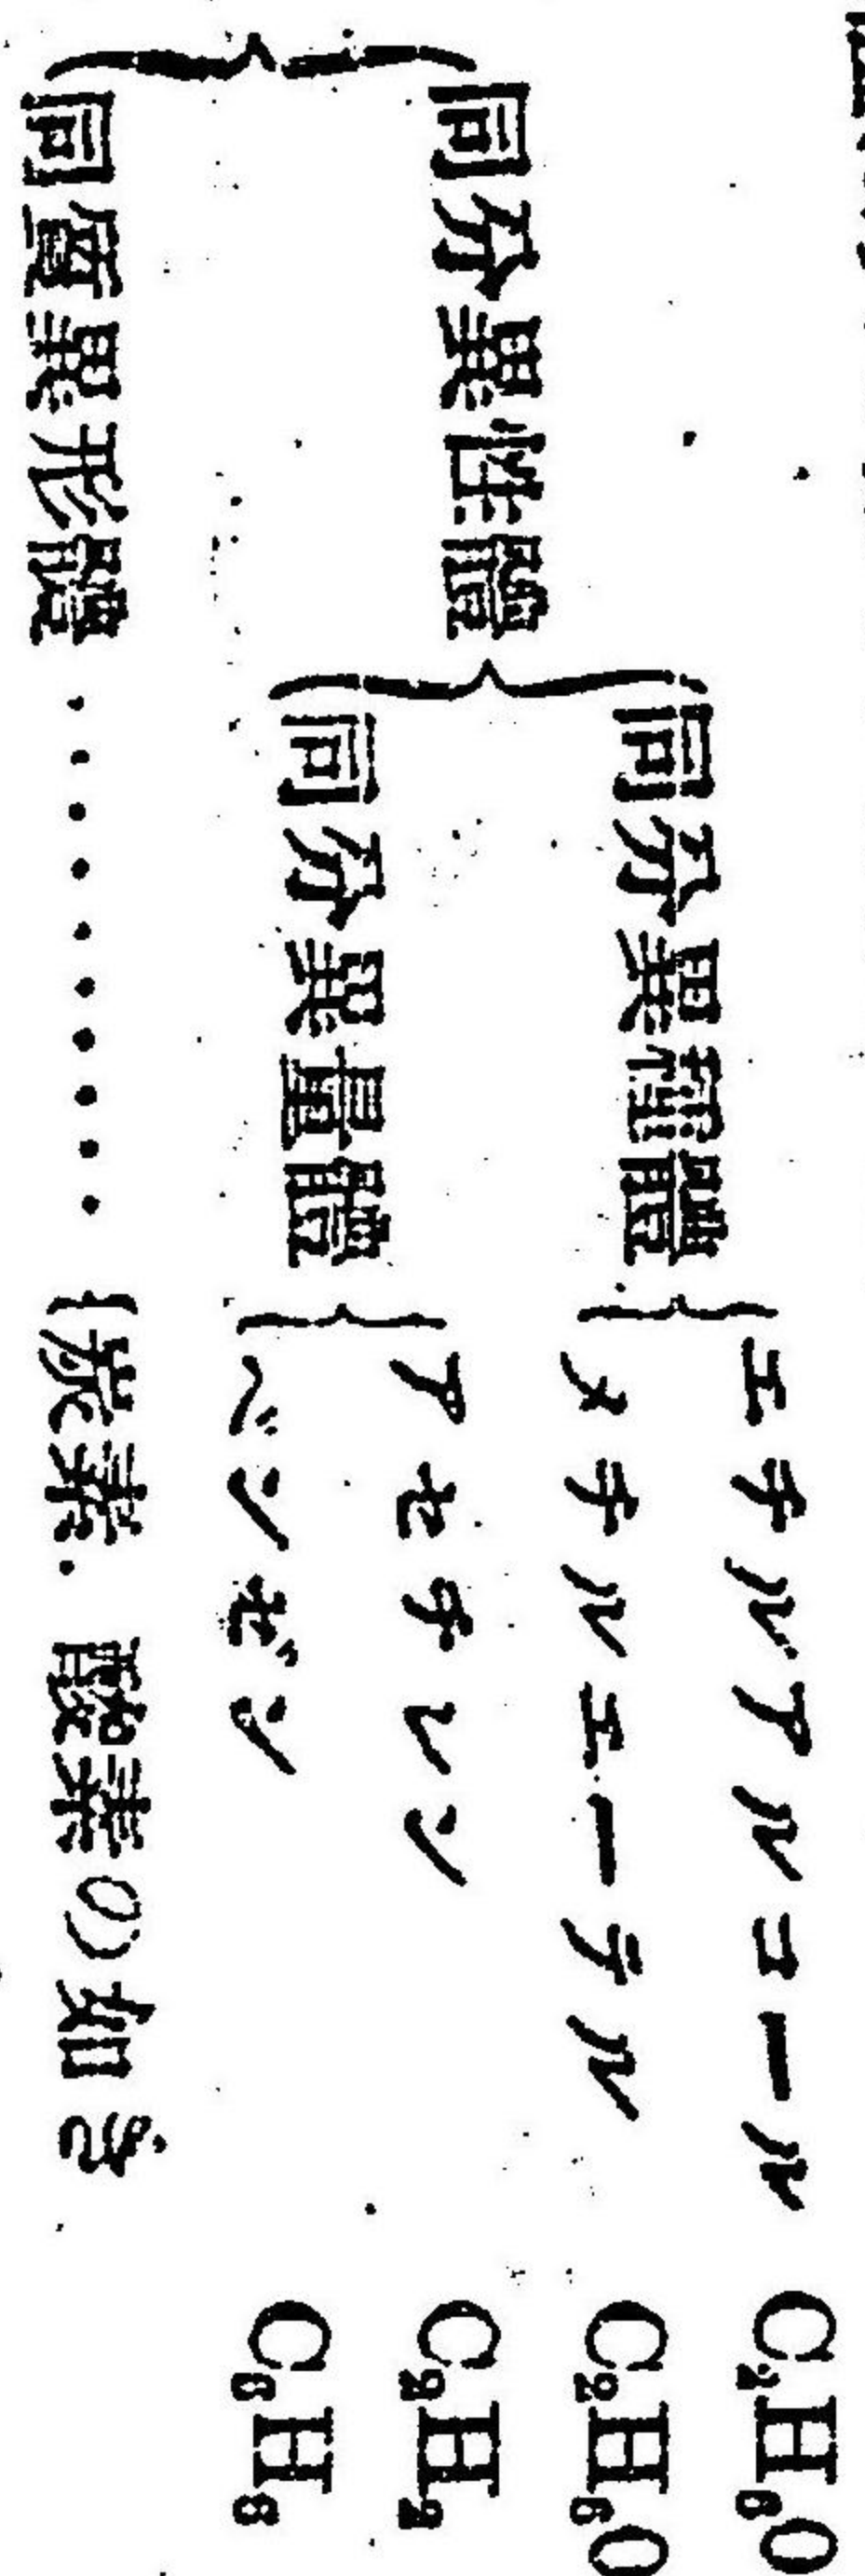 同分異性體
同分異種體
エチルアルコール C₂H₆O
メチルエーテル C₂H₆O
同分異量體
アセチレン C₂H₂
ベンゼン C₆H₆
同質異形體 ・・・・・・・・・・ {炭素. 酸素の如き